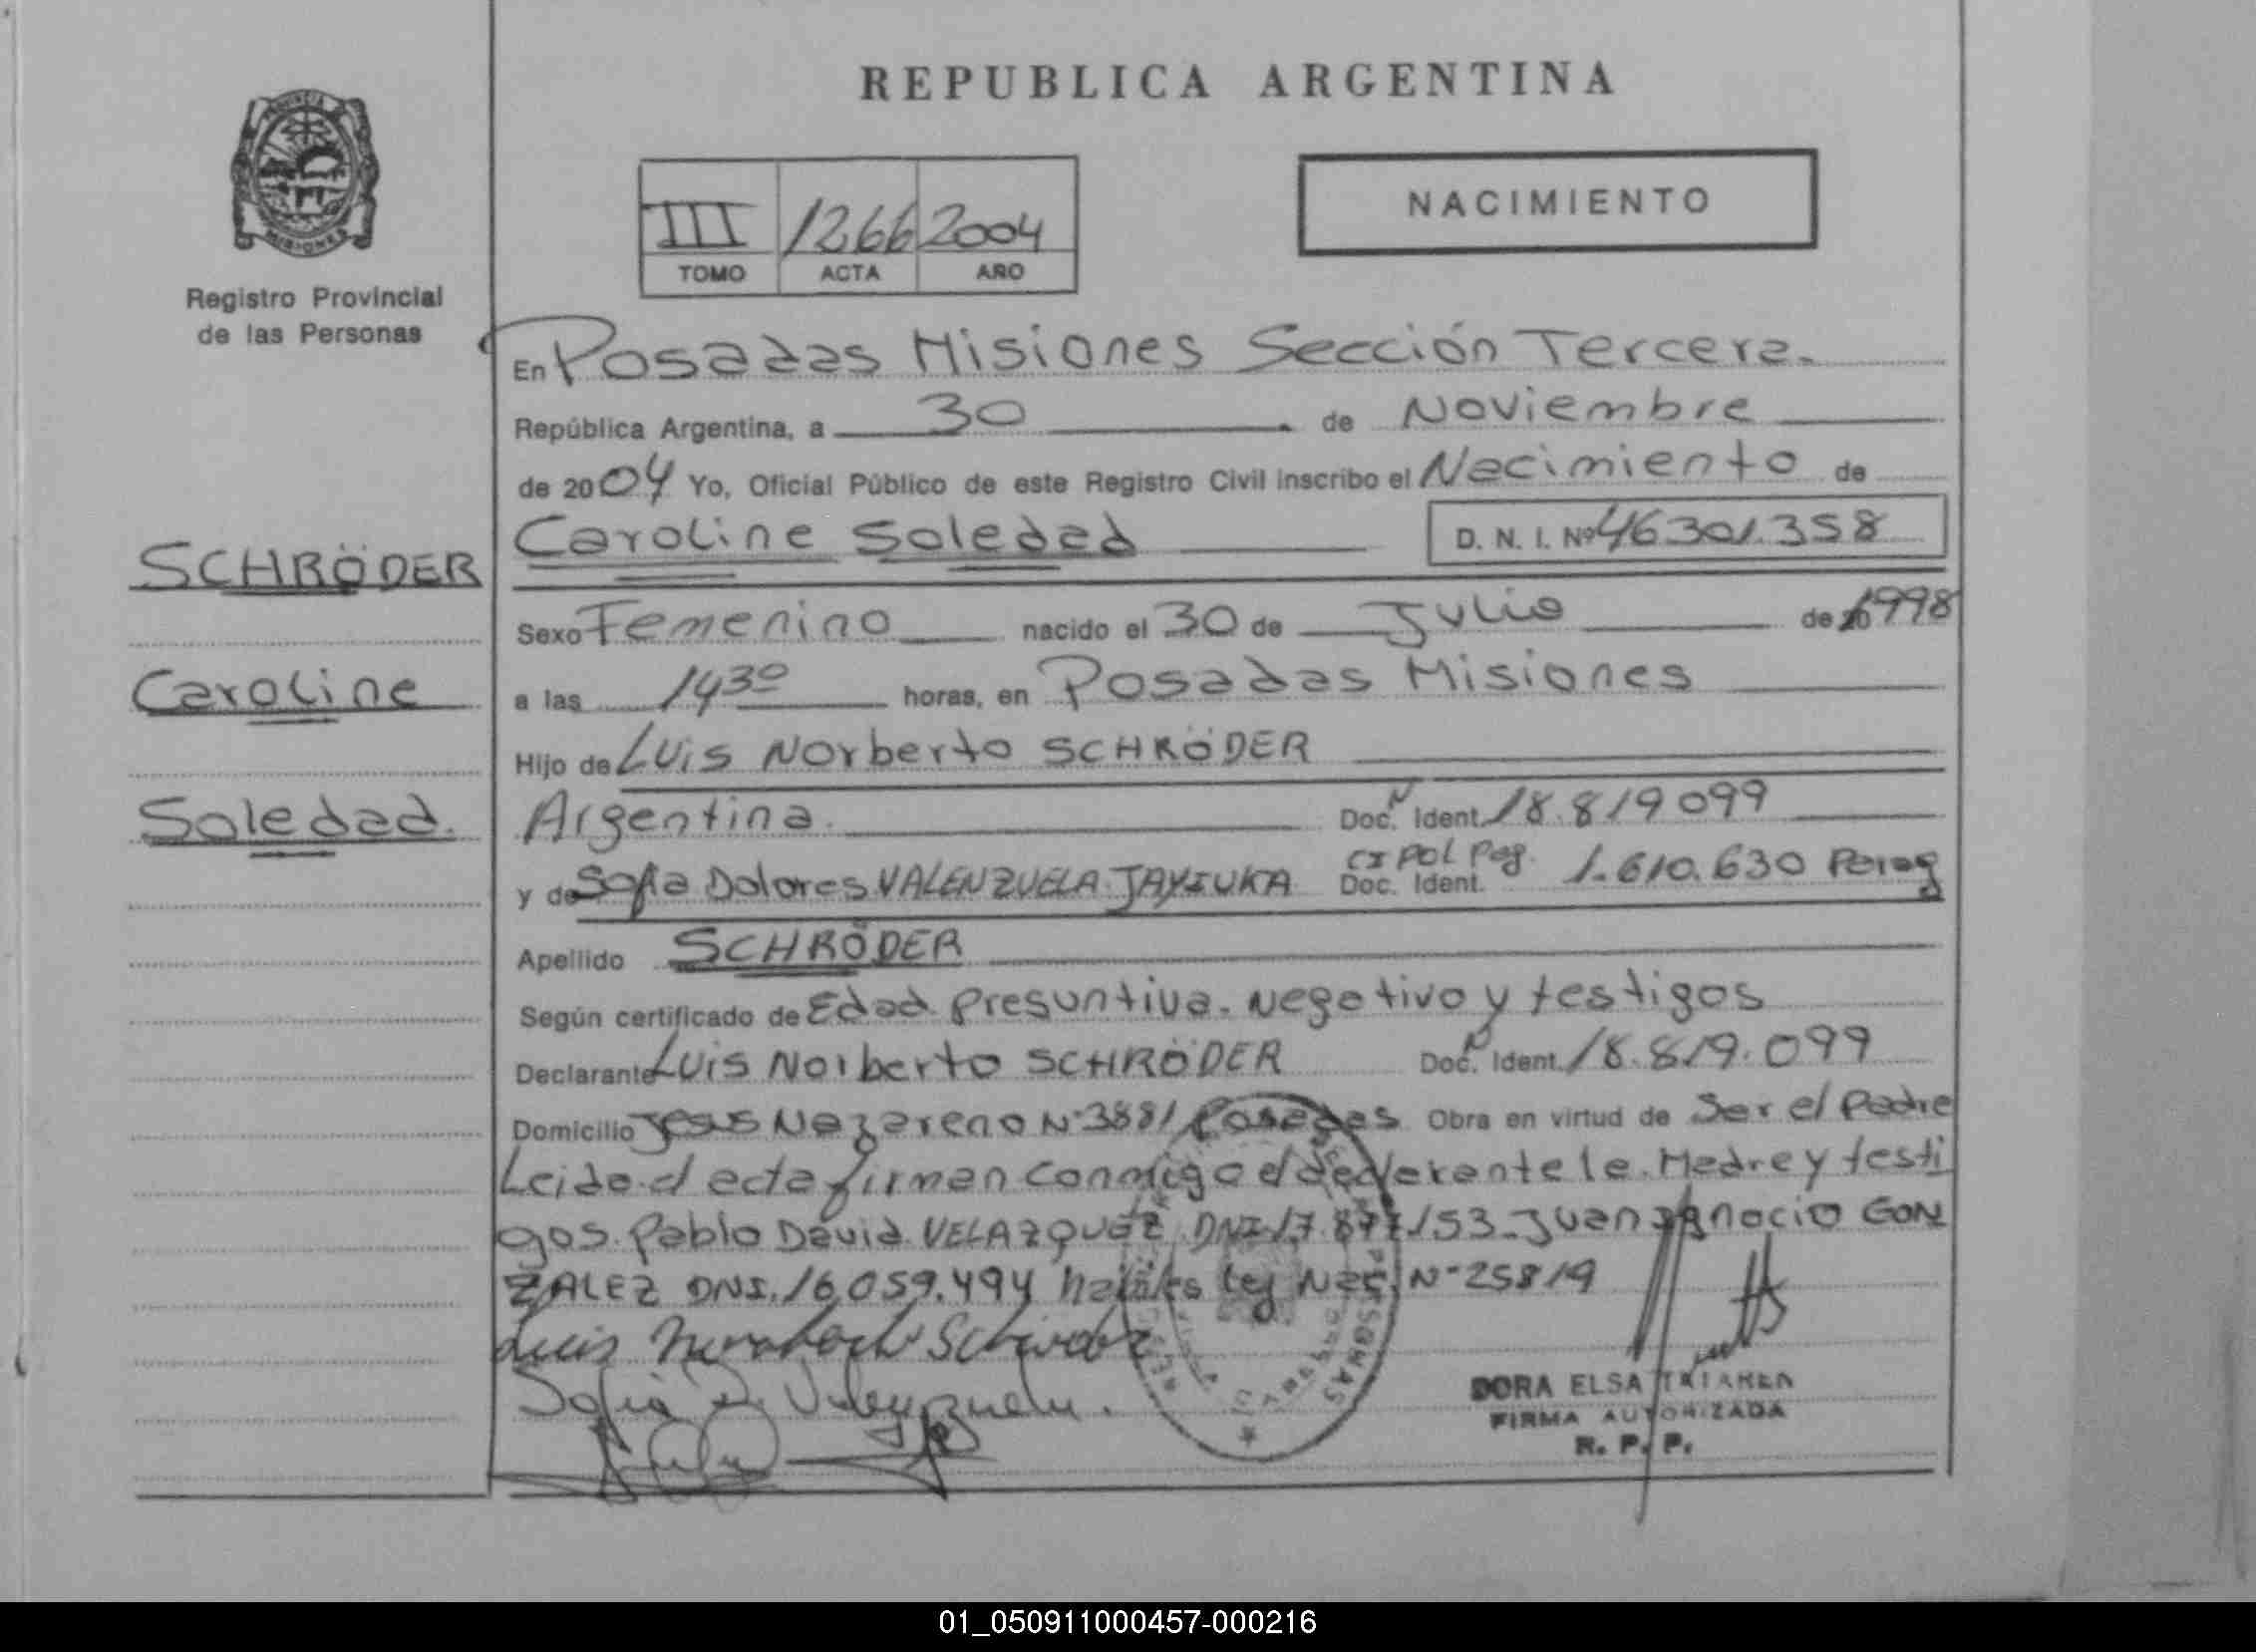 REPUBLICA ARGENTINA
PROVINCIA
MISIONES
Registro Provincial
de las Personas
III 1266 2004
TOMO ACTA AÑO
NACIMIENTO
En Posadas Misiones Sección Tercera.
República Argentina, a 30 de Noviembre
de 2004 Yo, Oficial Público de este Registro Civil inscribo el Nacimiento de
Caroline Soledad D. N. I. Nº 46301.358
SCHRÖDER
Caroline
Soledad.
Sexo Femenino nacido el 30 de Julio de 1998
a las 1430 horas, en Posadas Misiones
Hijo de Luis Norberto SCHRÖDER
Argentina. Doc. N Ident. 18.819099
y de Sofia Dolores VALENZUELA JAYIUKA CI Pol Pag. Doc. Ident. 1.610.630 Parag
Apellido SCHRÖDER
Según certificado de Edad Presuntiva. Negativo y testigos
Declarante Luis Norberto SCHRÖDER Doc. N Ident. 18.819.099
Domicilio Jesus Nazareno Nº3881 Posadas Obra en virtud de Ser el Padre
Leida el acta firman conmigo el declarante la Madre y testi
gos. Pablo David VELAZQUEZ DNI 17.877153 - Juan Ignacio GON
ZALEZ DNI. 16.059.494 Ley Nac. Nº 25819
Luis Schroder
Sofia D. Valenzuela.
DORA ELSA
FIRMA AUTORIZADA
R. P. P.
01_050911000457-000216